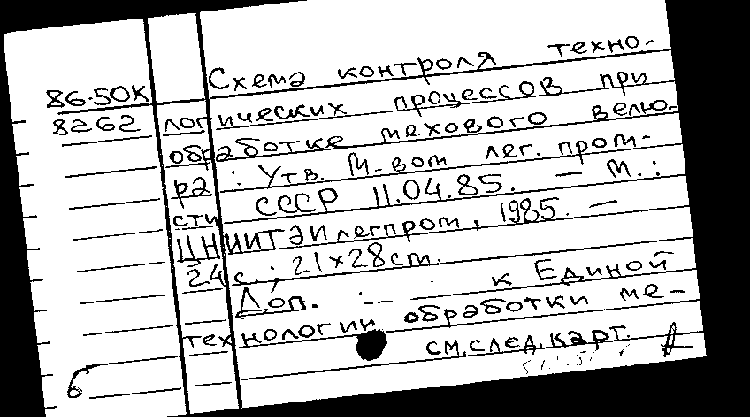 Схема контроля техно-
86.50К
8262 логических процессов при
обработке мехового велю-
ра : Утв. М-вом лег. пром-
сти СССР 11.04.85. — М. :
ЦНИИТЭИлегпром, 1985. —
24 с. ; 21×28 см.
Доп. : — к Единой
технологии обработки ме-
см. след. карт.
б